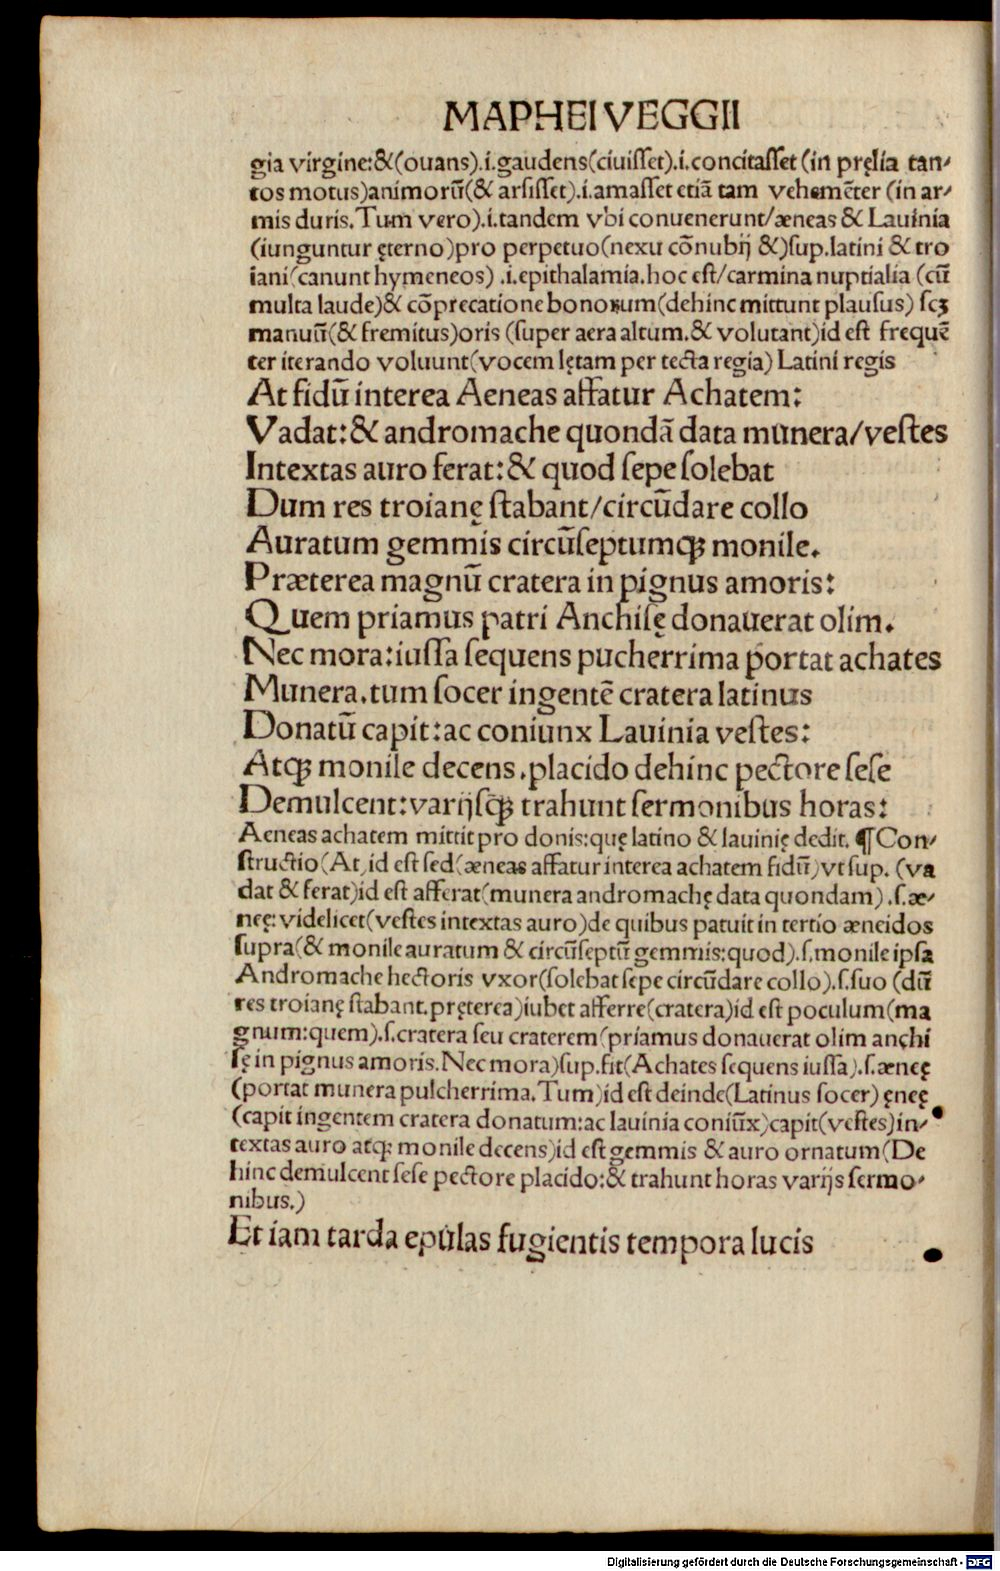 MAPHEI VEGGII
gia virgine:&(ouans).i.gaudens(ciuisset).i.concitasset (in pręlia tan⸗
tos motus)animorū(& arsisset).i.amasset etiā tam vehemēter (in ar⸗
mis duris.Tum vero).i.tandem vbi conuenerunt/æneas & Lauinia
(iunguntur ęterno)pro perpetuo(nexu cōnubij &)sup.latini & tro
iani(canunt hymeneos) .i.epithalamia.hoc est/carmina nuptialia (cū
multa laude)& cōprecatione bonorum(dehinc mittunt plausus) scꝫ
manuū(& fremitus)oris (super aera altum.& volutant)id est frequē
ter iterando voluunt(vocem lętam per tecta regia) Latini regis
At fidū interea Aeneas affatur Achatem:
Vadat:& andromache quondā data munera/vestes
Intextas auro ferat:& quod sepe solebat
Dum res troianę stabant/circūdare collo
Auratum gemmis circūseptumqꝫ monile.
Præterea magnū cratera in pignus amoris:
Quem priamus patri Anchisę donauerat olim.
Nec mora:iussa sequens pucherrima portat achates
Munera.tum socer ingentē cratera latinus
Donatū capit:ac coniunx Lauinia vestes:
Atqꝫ monile decens.placido dehinc pectore sese
Demulcent:varijsqꝫ trahunt sermonibus horas:
Aeneas achatem mittit pro donis:quę latino & lauinię dedit. ¶Con⸗
structio(At)id est sed(æneas affatur interea achatem fidū)vt sup. (va
dat & ferat)id est afferat(munera andromachę data quondam).s.æ⸗
neę: videlicet(vestes intextas auro)de quibus patuit in tertio æneidos
supra(& monile auratum & circūseptū gemmis:quod).s.monile ipsa
Andromache hectoris vxor(solebat sepe circūdare collo).s.suo (dū
res troianę stabant.pręterea)iubet afferre(cratera)id est poculum(ma
gnum:quem).s.cratera seu craterem(priamus donauerat olim anchi
sę in pignus amoris.Nec mora)sup.fit(Achates sequens iussa).s.æneę
(portat munera pulcherrima.Tum)id est deinde(Latinus socer) ęneę
(capit ingentem cratera donatum:ac lauinia coniūx)capit(vestes)in⸗
textas auro atqꝫ monile decens)id est gemmis & auro ornatum(De
hinc demulcent sese pectore placido:& trahunt horas varijs sermo⸗
nibus.)
Et iam tarda epulas fugientis tempora lucis
Digitalisierung gefördert durch die Deutsche Forschungsgemeinschaft - DFG